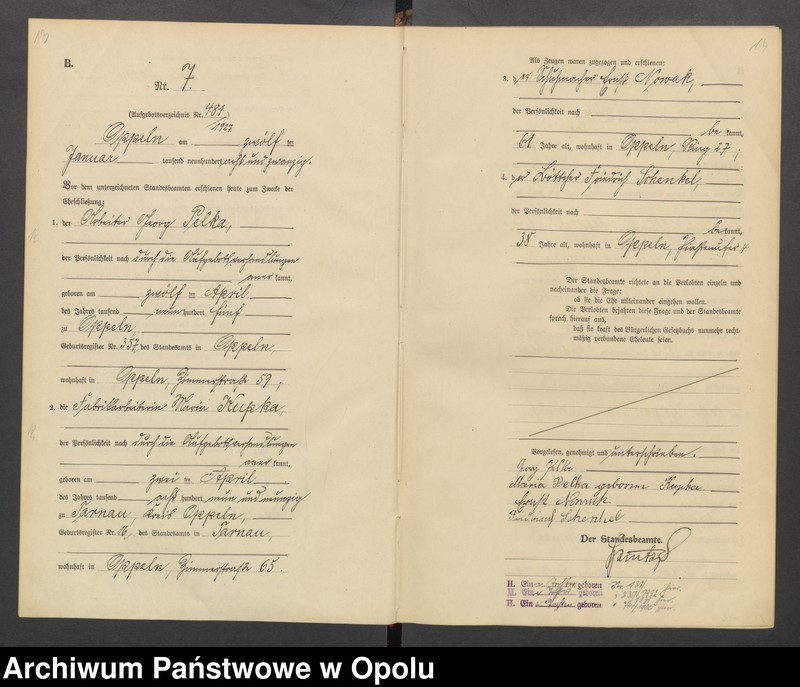 13
B.
Nr. 7.
(Aufgebotsverzeichnis Nr. 481
1927
Oppeln am zwölf ten
Januar tausend neunhundert acht und zwanzig.
Vor dem unterzeichneten Standesbeamten erschienen heute zum Zwecke der
Eheschließung:
1. der Arbeiter Georg Pelka,
der Persönlichkeit nach durch die Aufgebotsverhandlungen
aner kannt,
geboren am zwölf ten April
des Jahres tausend neun hundert fünf
zu Oppeln,
Geburtsregister Nr. 357 des Standesamts in Oppeln,
wohnhaft in Oppeln, Zimmerstraße 59,
2. die Fabrikarbeiterin Maria Kupka,
der Persönlichkeit nach durch die Aufgebotsverhandlungen
aner kannt,
geboren am zwei ten April
des Jahres tausend acht hundert neun und neunzig
zu Tarnau, Kreis Oppeln,
Geburtsregister Nr. 16, des Standesamts in Tarnau,
wohnhaft in Oppeln, Zimmerstraße 65.
14
Als Zeugen waren zugezogen und erschienen:
3. der Schuhmacher Ernst Nowak,
der Persönlichkeit nach
be kannt,
61 Jahre alt, wohnhaft in Oppeln, Ring 27,
4. der Böttcher Friedrich Schenkel,
der Persönlichkeit nach
be kannt,
38 Jahre alt, wohnhaft in Oppeln,
Der Standesbeamte richtete an die Verlobten einzeln und
nacheinander die Frage:
ob sie die Ehe miteinander eingehen wollen.
Die Verlobten bejahten diese Frage und der Standesbeamte
sprach hierauf aus,
daß sie kraft des Bürgerlichen Gesetzbuchs nunmehr recht-
mäßig verbundene Eheleute seien.
Vorgelesen, genehmigt und unterschrieben.
Georg Pelka
Maria Pelka geborene Kupka
Ernst Nowak
Friedrich Schenkel
Der Standesbeamte.
II. Ein e Tochter geboren
II. Ein geboren
II. Ein geboren
Archiwum Państwowe w Opolu